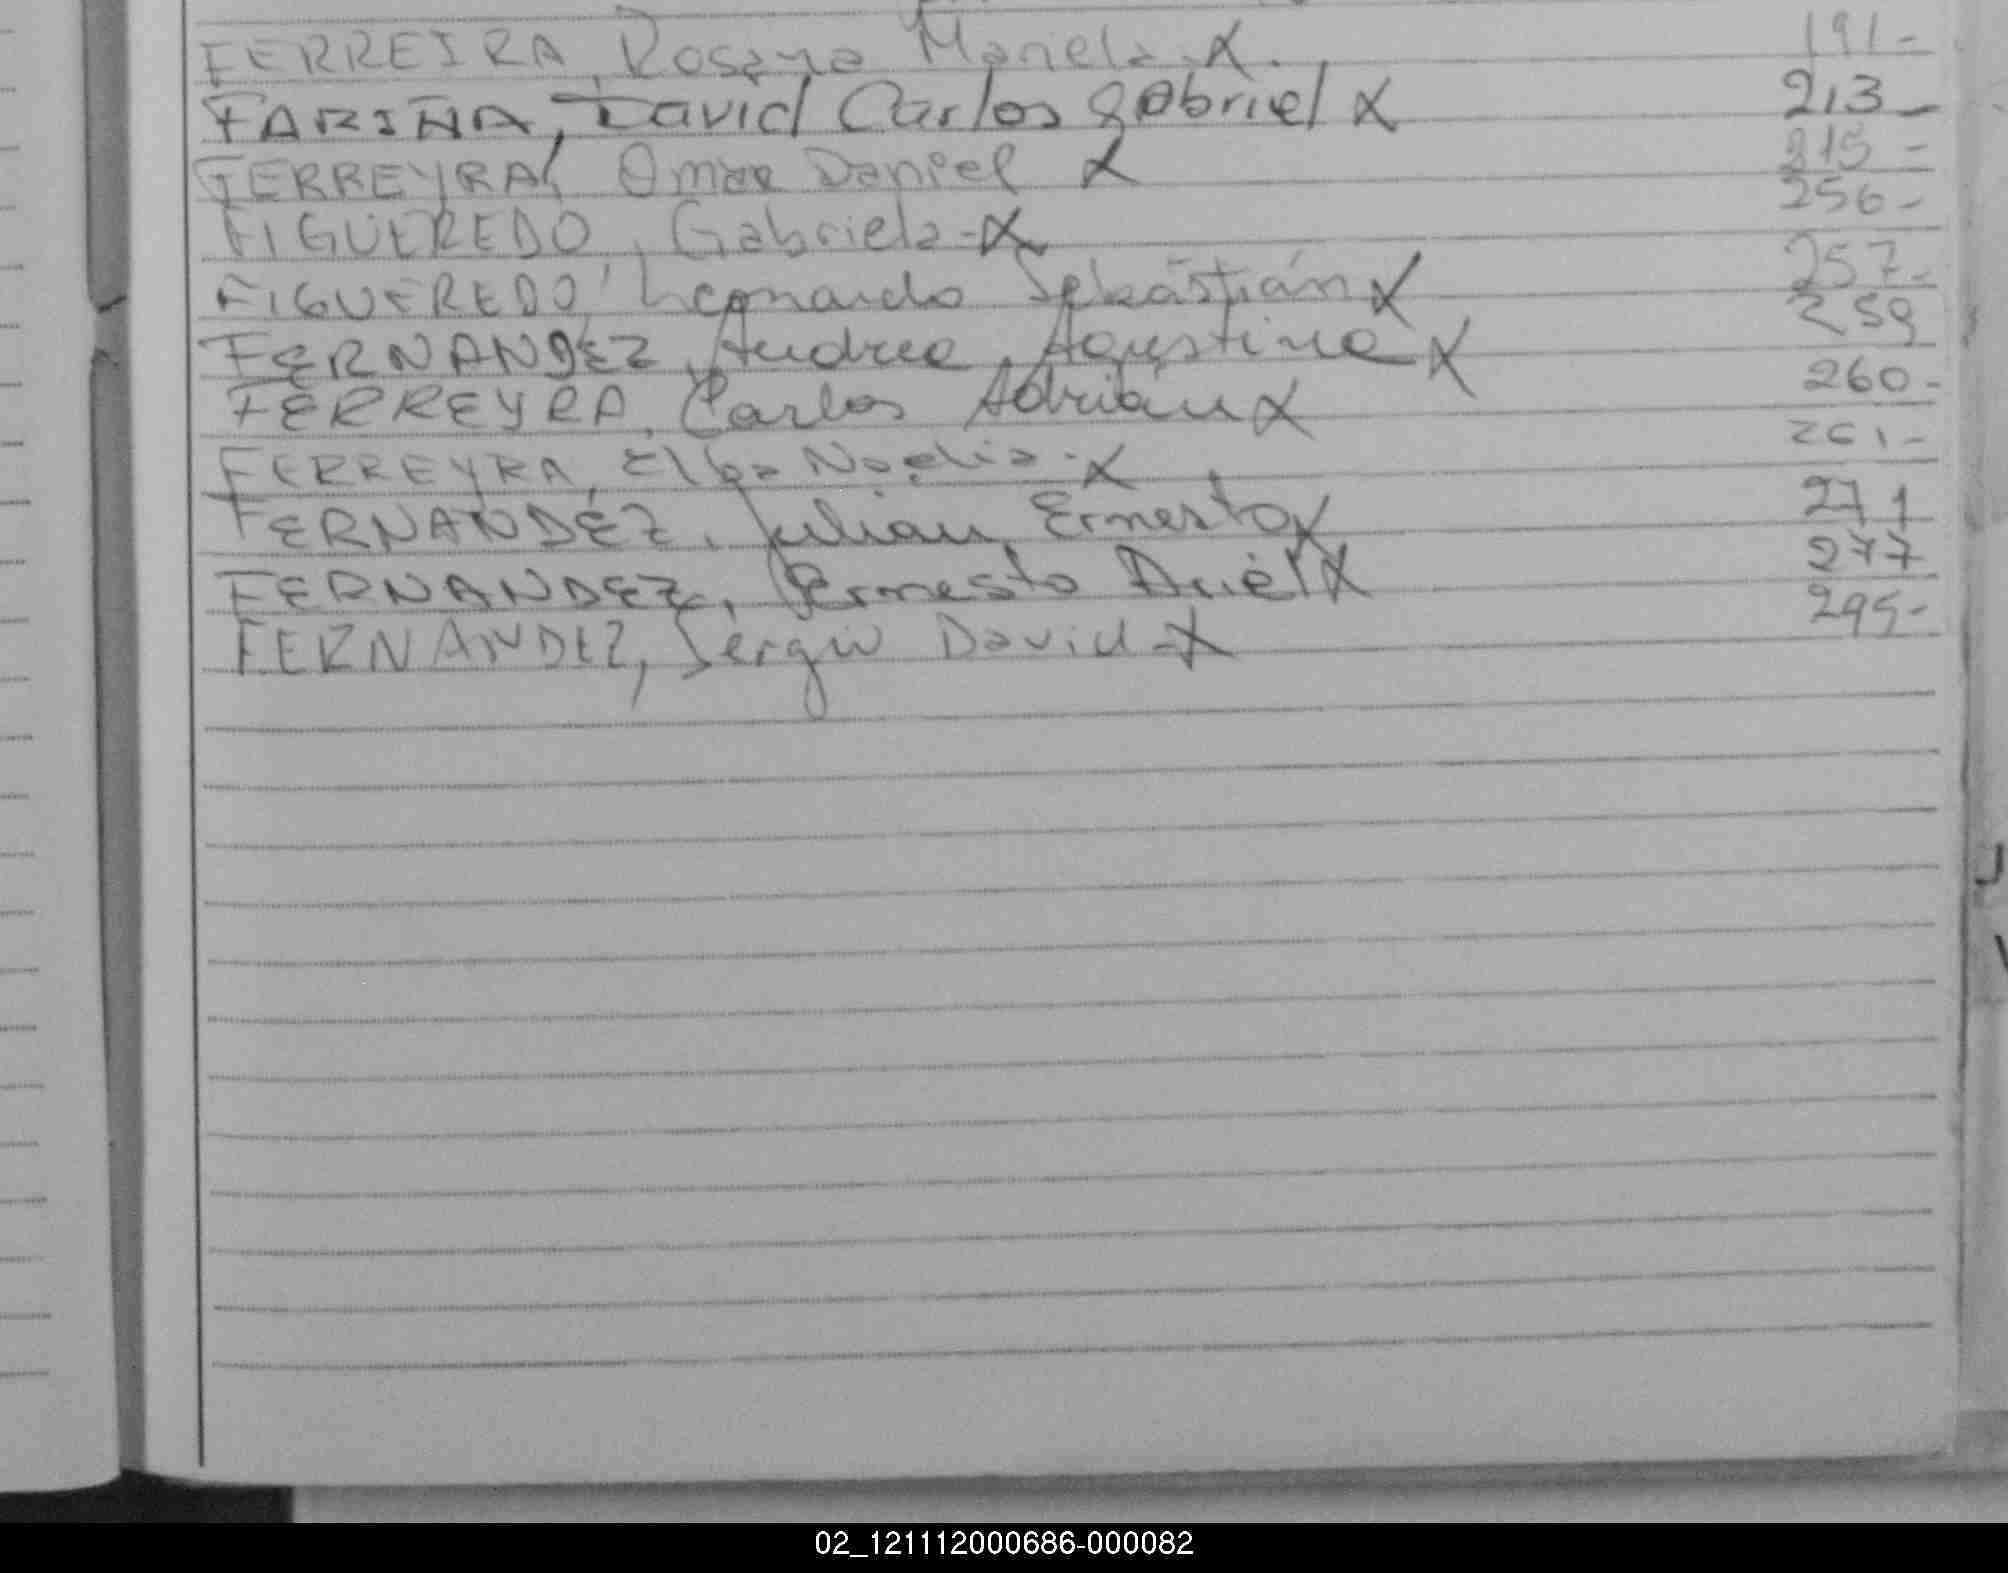 FERREIRA, Rosana Mariela X. 191-
FARIÑA, David Carlos Gabriel X 213-
FERREYRA, Omar Daniel X 215-
FIGUEREDO, Gabriela-X 256-
FIGUEREDO, Leonardo Sebastián X 257-
FERNANDEZ, Andrea Agustina X 259
FERREYRA, Carlos Adrián X 260-
FERREYRA, Elba Noelia-X 261-
FERNANDEZ, Julian Ernesto X 271
FERNANDEZ, Ernesto Ariel X 277
FERNANDEZ, Sergio David-X 295-
02_121112000686-000082